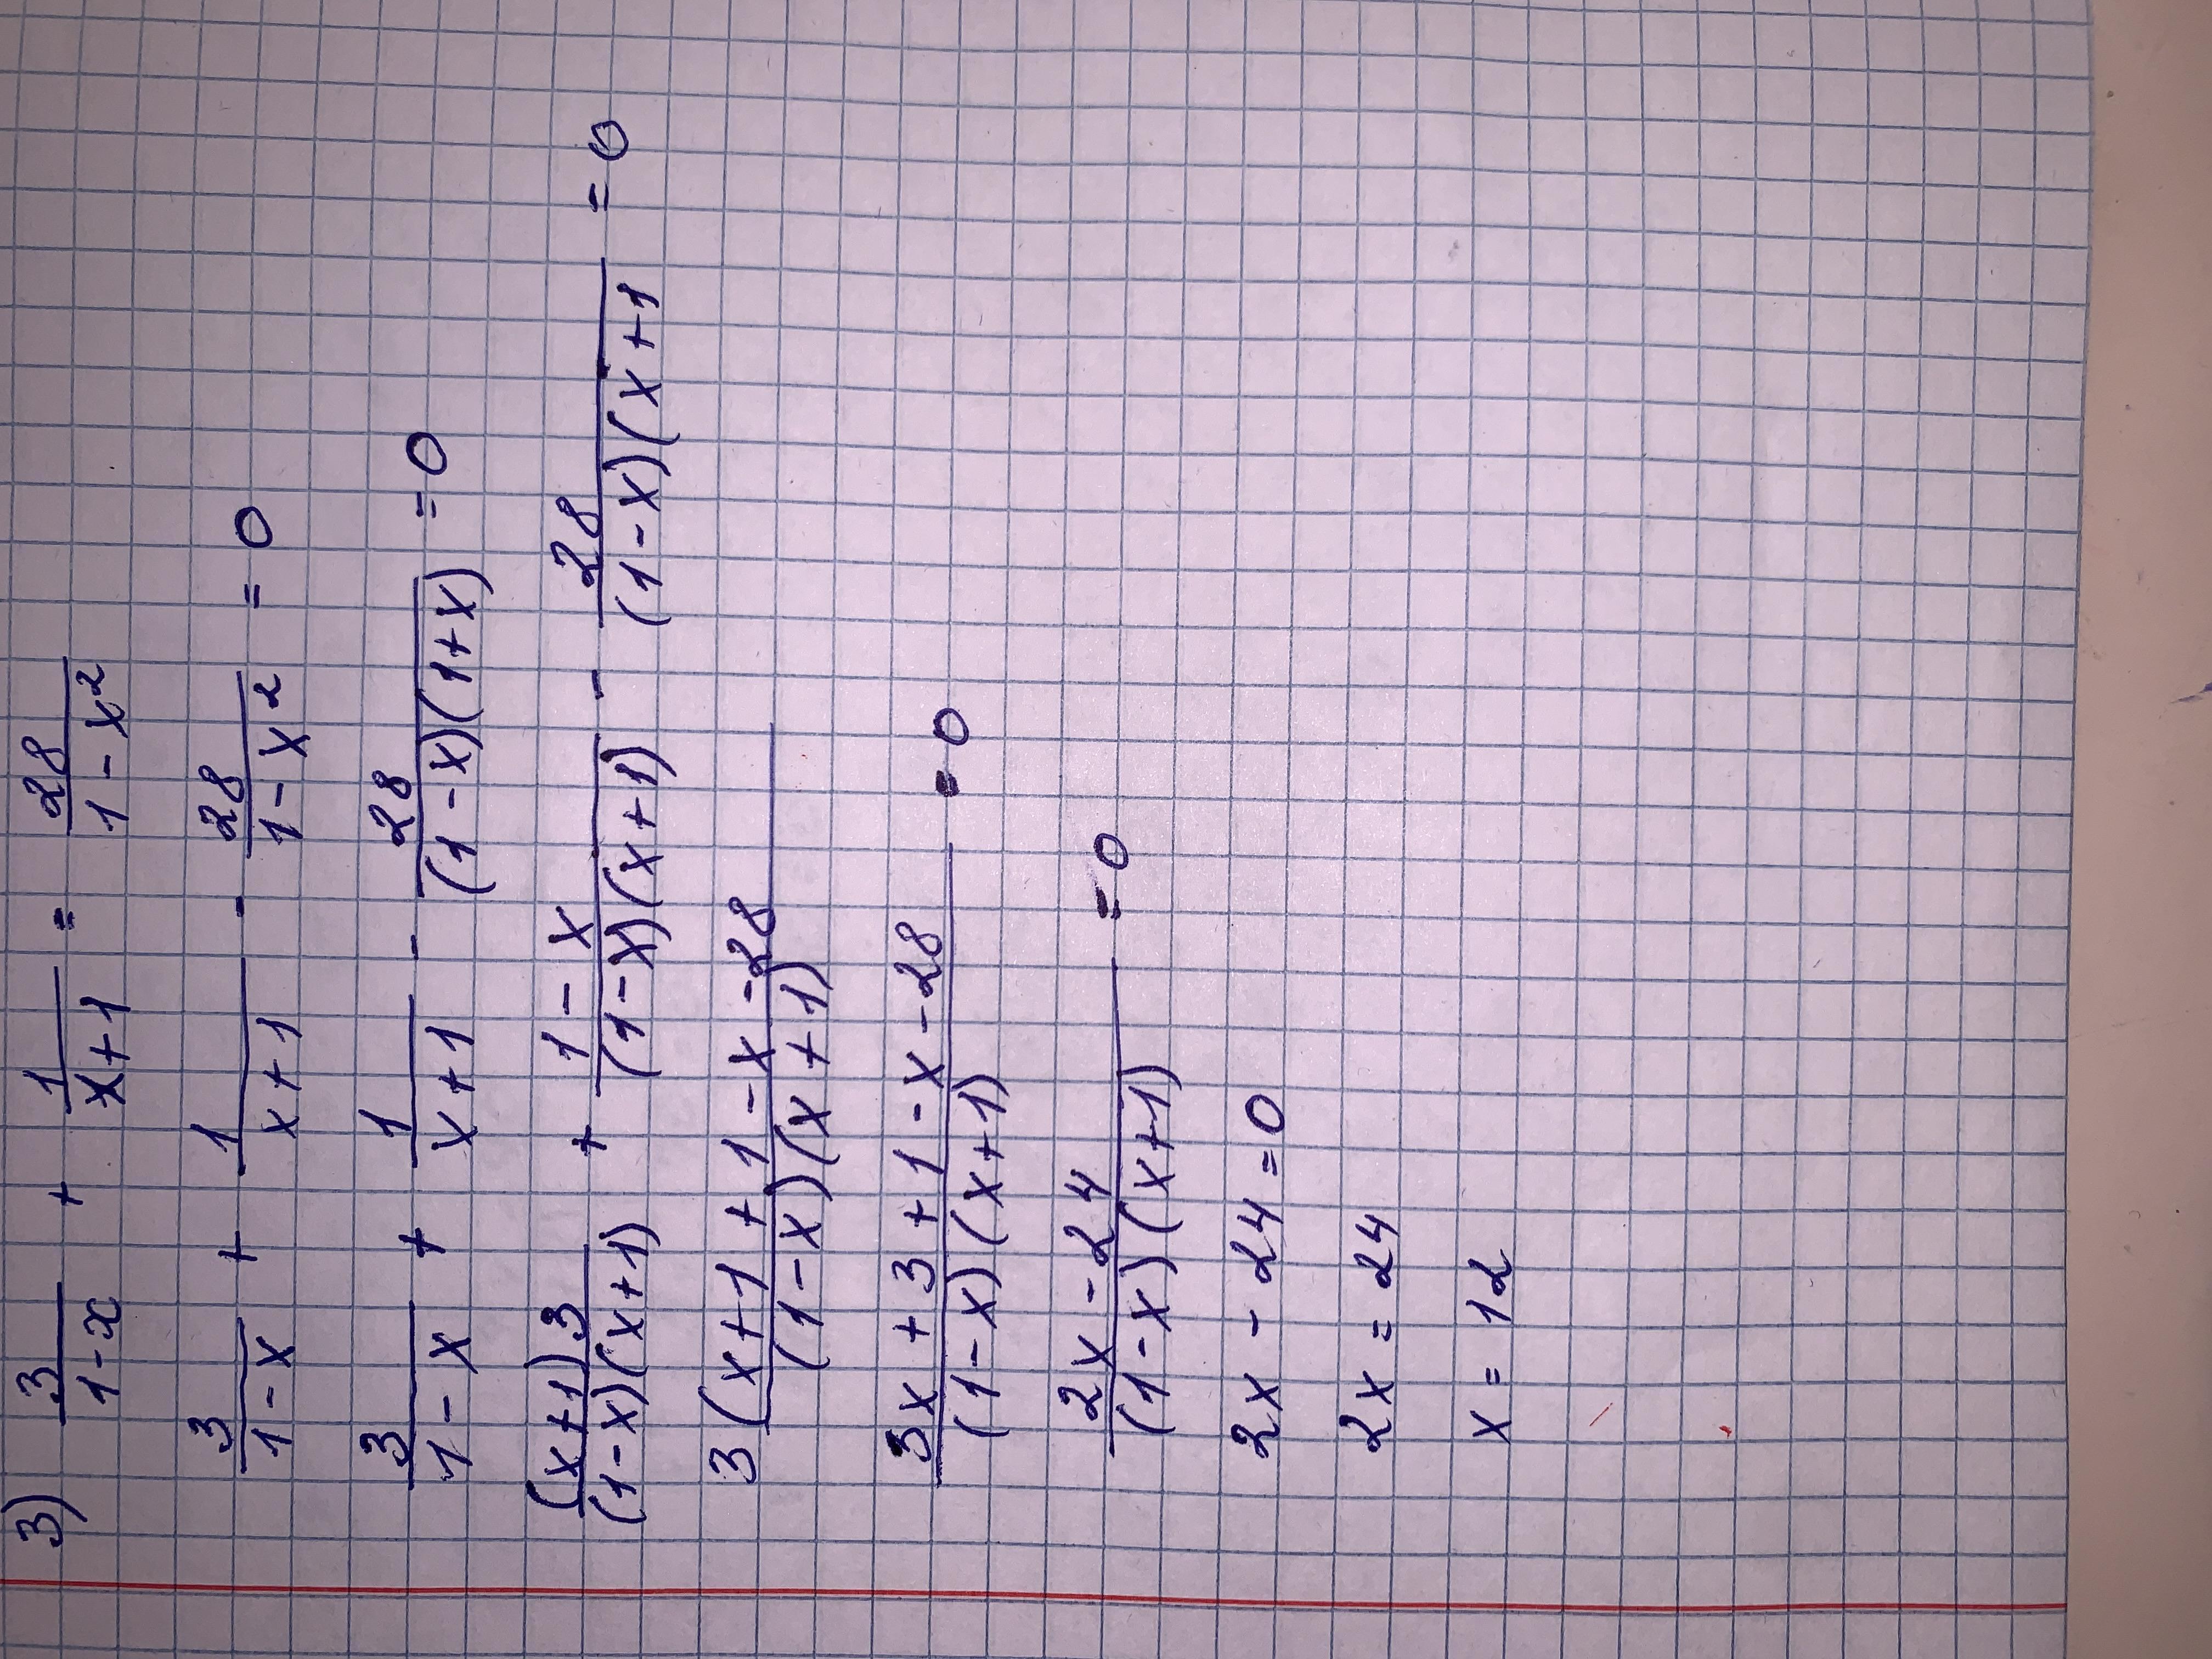 3) 3/(1-x) + 1/(x+1) = 28/(1-x²)
3/(1-x) + 1/(x+1) - 28/(1-x²) = 0
3/(1-x) + 1/(x+1) - 28/((1-x)(1+x)) = 0
(x+1)3/((1-x)(x+1)) + (1-x)/((1-x)(x+1)) - 28/((1-x)(x+1 = 0
3(x+1+1-x-28/((1-x)(x+1)
(3x+3+1-x-28)/((1-x)(x+1)) = 0
(2x-24)/((1-x)(x+1)) = 0
2x-24=0
2x=24
x=12